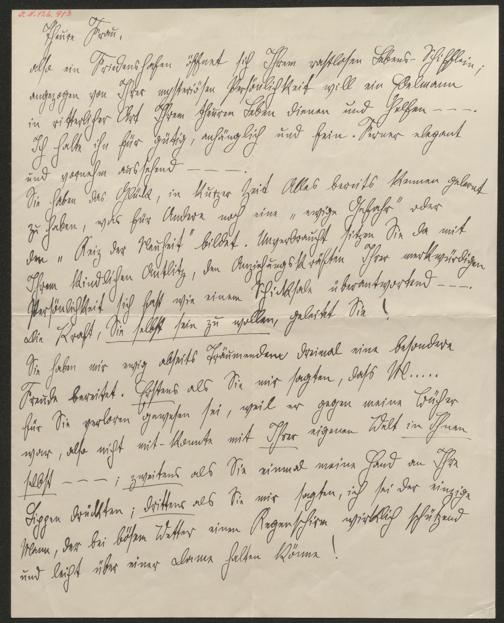 Theure Frau,
also ein Friedenshafen öffnet sich Ihrem rastlosen Lebens-Schifflein;
angezogen von Ihrer mysteriösen Persönlichkeit will ein Edelmann
in ritterlicher Art Ihrem theuren Leben dienen und helfen — — —.
Ich halte ihn für gütig, anhänglich und fein. Ferner elegant
und vornehm aussehend — — —.
Sie haben das Glück, in kurzer Zeit Alles bereits kennen gelernt
zu haben, was für Andere noch eine „ewige Gefahr" oder
den „Reiz der Neuheit" bildet. Unverbraucht sitzen Sie da mit
Ihrem kindlichen Antlitz, den Anziehungskräften Ihrer merkwürdigen
Persönlichkeit sich fast wie einem Schicksale überantwortend — — —.
Die Kraft, Sie selbst sein zu wollen, geleitet Sie!
Sie haben mir ewig abseits Träumendem dreimal eine besondere
Freude bereitet. Erstens als Sie mir sagten, dass M.....
für Sie verloren gewesen sei, weil er gegen meine Bücher
war, also nicht mit-konnte mit Ihrer eigenen Welt in Ihnen
selbst — — —; zweitens als Sie einmal meine Hand an Ihre
Lippen drückten; drittens als Sie mir sagten, ich sei der einzige
Mann, der bei bösem Wetter einen Regenschirm wirklich schützend
und leicht über einer Dame halten könne!